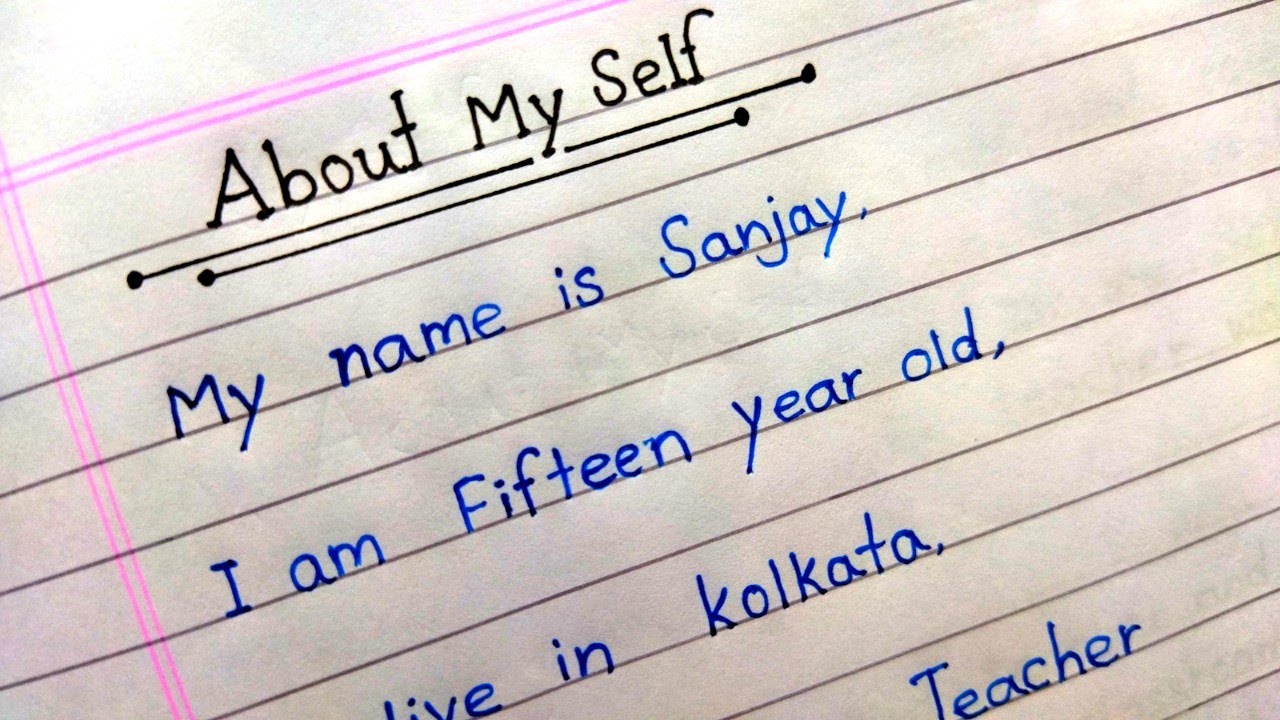 About My Self
My name is Sanjay,
I am Fifteen year old,
live in kolkata,
Teacher